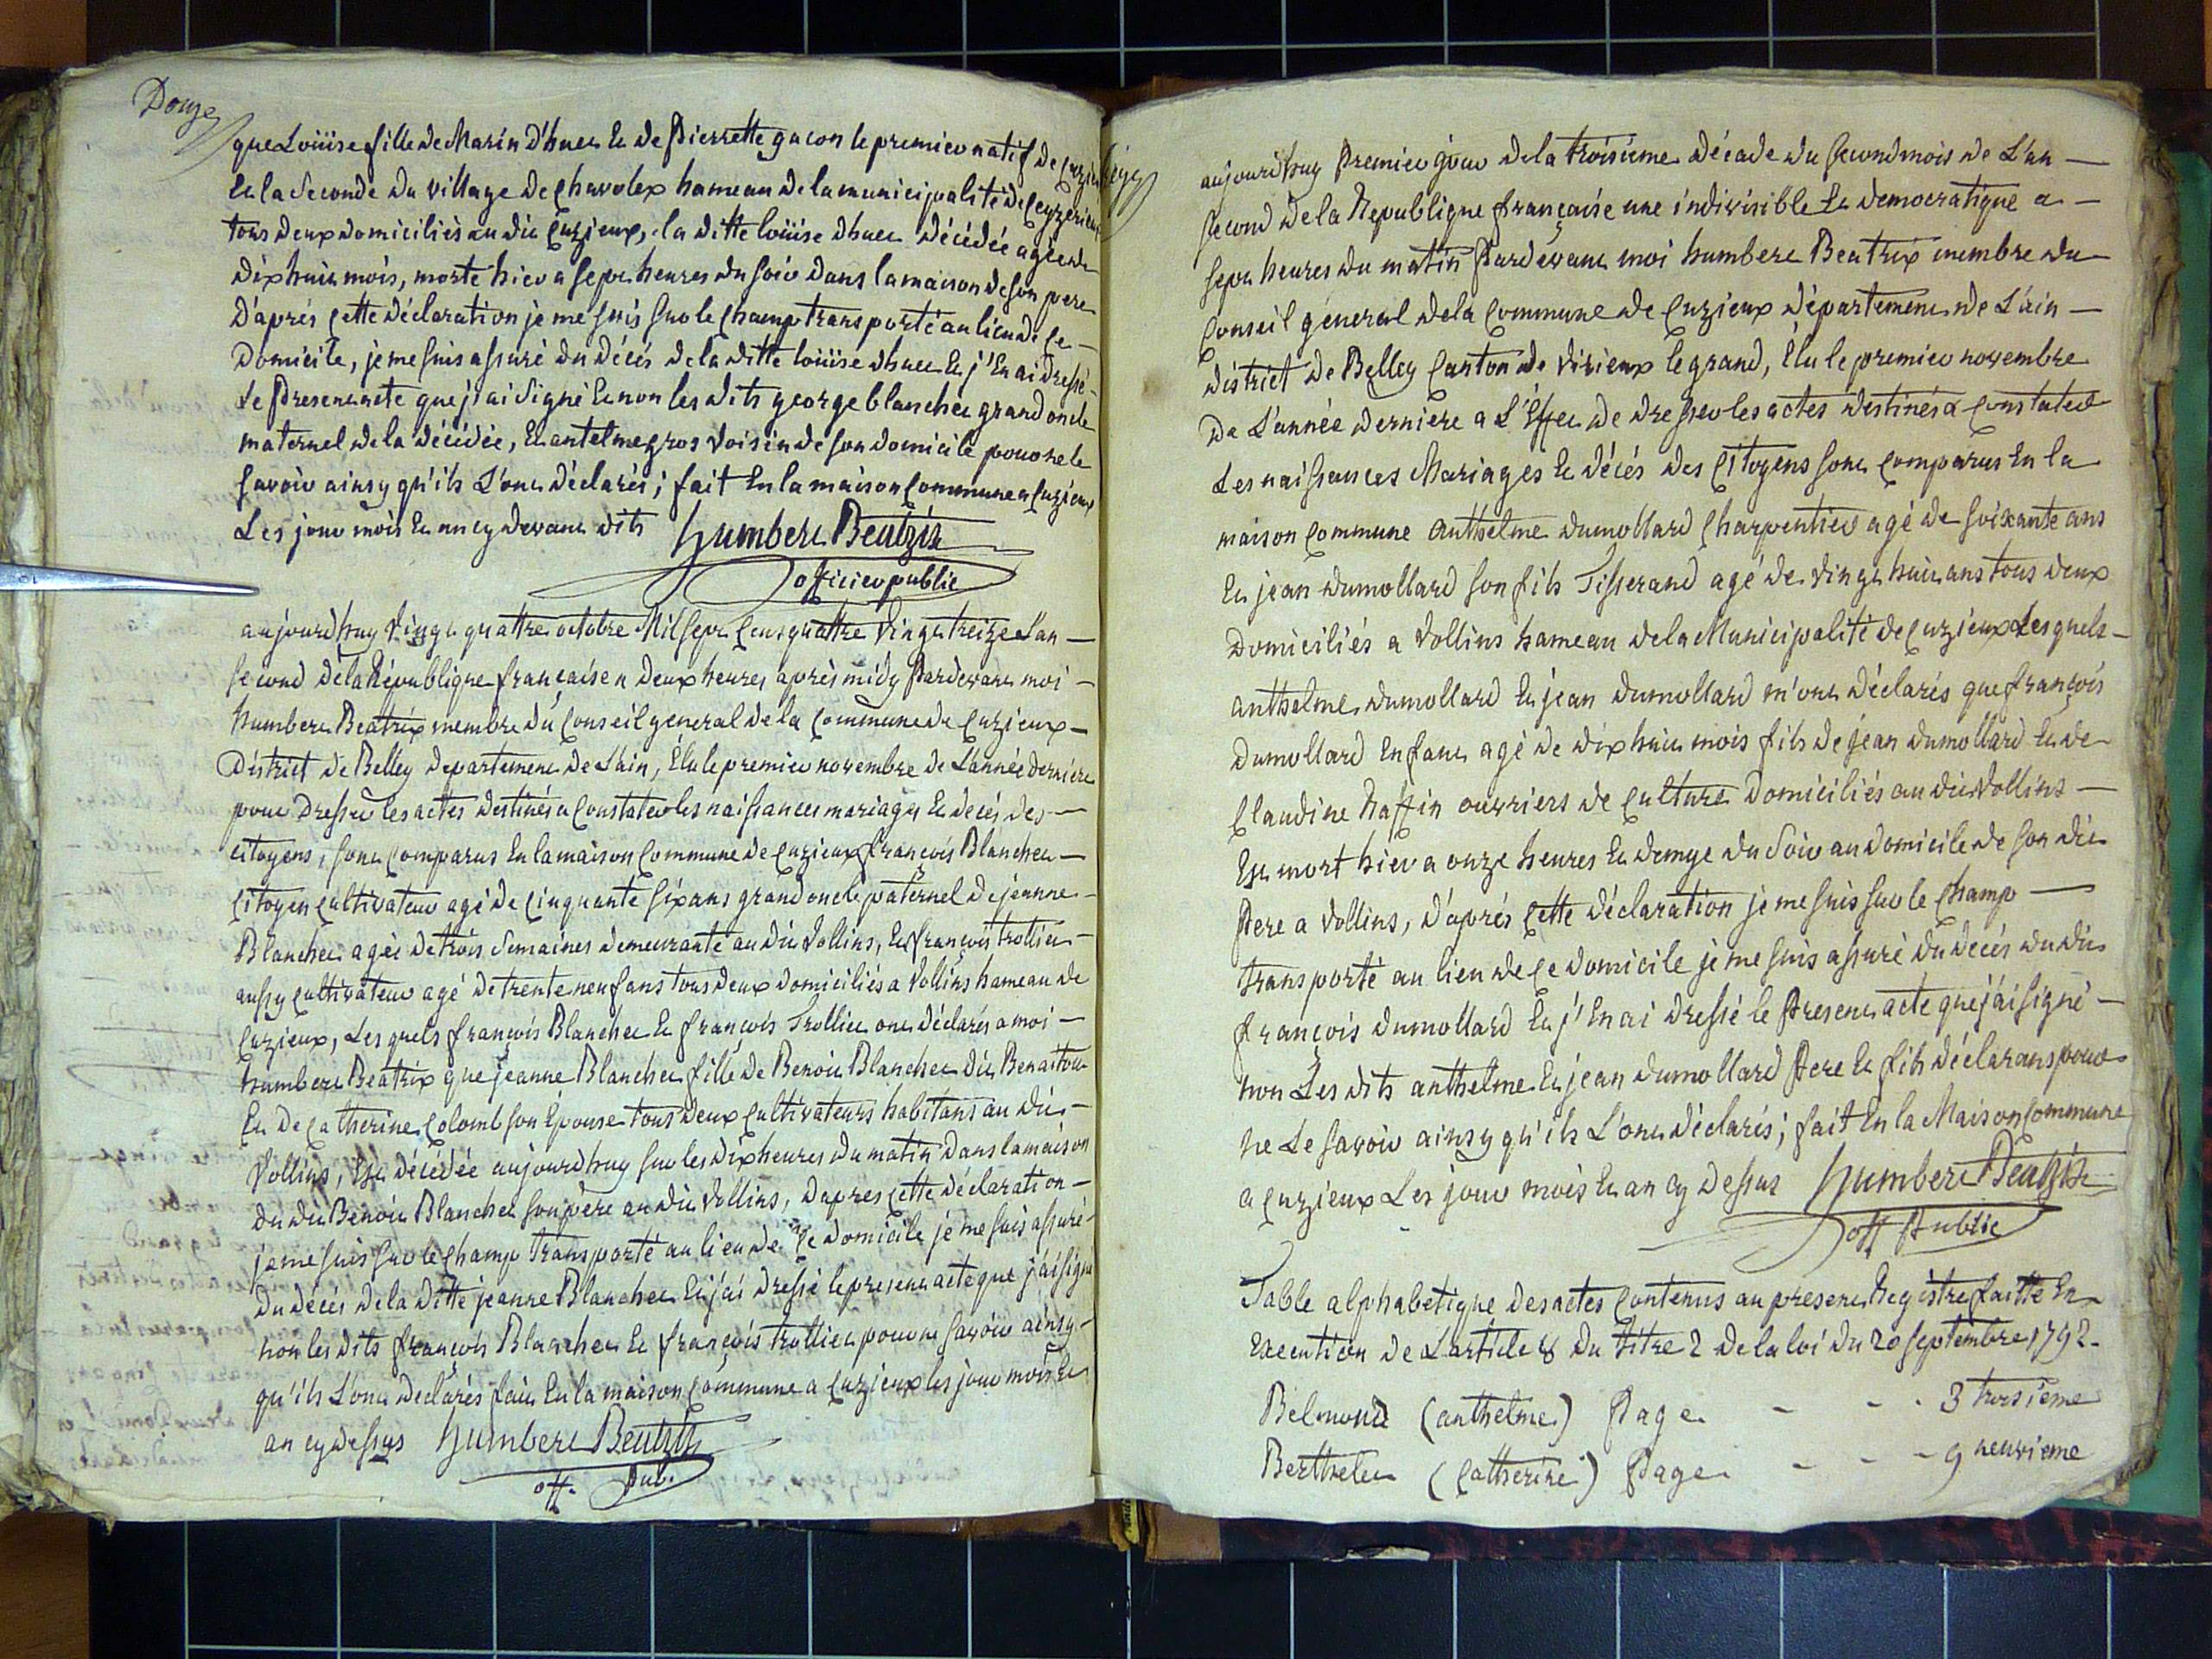 Douze
que Loüise fille de Marin D'huet Et de Pierrette gacon le premier natif de Cuzieu
Et la Seconde du village de Chavolex hameau de la municipalité de Ceyzerieux
tous deux domiciliés au dit Cuzieux, la ditte loüise dhuet décédée agée de
Dix huit mois, morte hier a sept heures du soir dans la maison de son pere
D'après cette déclaration je me suis sur le champ transporté au lieu de ce
Domicile, je me suis assuré du décés de la ditte loüise dhuet Et j'En ai dressé
Le Present acte que j'ai Signé Et non les dits george blanchet grand oncle
maternel de la décédée, Et antelme gros voisin de son domicile pour ne le
Savoir ainsy qu'ils L'ont déclarés; fait En la maison Commune a Cuzieux
Les jour mois Et an cy devant dits Humbert Beatrix
officier public
aujourdhuy vingt quattre octobre Mil Sept Cent quattre vingt treize L'an
Second de la République française a deux heures après midy Pardevant moi
humbert Beatrix membre du Conseil general de la Commune de Cuzieux
District de Belley departement de L'ain, Élu le premier novembre de L'année derniere
pour Dresser les actes destinés a Constater les naissances mariages Et décés des
citoyens, sont Comparus En la maison Commune de Cuzieux françois Blanchet
Citoyen Cultivateur agé de Cinquante six ans grand oncle paternel de jeanne
Blanchet agée de trois Semaines demeurante au dit Vollins, Et françois trollier
aussy Cultivateur agé de trente neuf ans tous deux domiciliés a Vollins hameau de
Cuzieux, Les quels françois Blanchet Et françois Trolliet ont déclarés a moi
humbert Beatrix que jeanne Blanchet fille de Benoit Blanchet dit Benaiton
Et de Catherine Colomb son Épouse tous deux Cultivateurs habitans au dit
Vollins, Est décédée aujourdhuy sur les dix heures du matin dans la maison
du dit Benoit Blanchet son père au dit Vollins, D'apres cette déclaration
je me suis sur le champ transporté au lieu de ce domicile je me suis assuré
du décés de la ditte jeanne Blanchet Et j'ai dressé le present acte que j'ai signé
non les dits françois Blanchet Et françois trolliet pour ne savoir ainsy
qu'ils L'ont déclarés fait En la maison Commune a Cuzieux les jour mois Et
an cy dessus Humbert Beatrix
off. Pub.
aujourdhuy Premier jour de la troisieme décade du Second mois de L'an
Second de la Republique française une indivisible Et democratique a
sept heures du matin Pardevant moi humbert Beatrix membre du
Conseil géneral de la Commune de Cuzieux département de L'ain
district de Belley Canton de Virieux le grand, Élu le premier novembre
De L'année derniere a L'Effet de dresser les actes destinés a Constater
Les naissances Mariages Et décés des Citoyens sont Comparus En la
maison Commune Anthelme dumollard Charpentier agé de soixante ans
Et jean dumollard son fils Tisserand agé de vingt huit ans tous deux
Domiciliés a Vollins hameau de la Municipalité de Cuzieux Lesquels
anthelme dumollard Et jean dumollard m'ont déclarés que françois
Dumollard Enfant agé de dix huit mois fils de jean dumollard Et de
Claudine Raffin ouvriers de Culture domiciliés au dit Vollins
Est mort hier a onze heures Et demye du Soir au domicile de son dit
Pere a Vollins, d'aprés Cette déclaration je me suis sur le Champ
transporté au lieu de ce domicile je me suis assuré du decés du dit
françois dumollard Et j'En ai dressé le Present acte que j'ai signé
non Les dits anthelme Et jean dumollard Pere Et fils déclarans pour
ne Le savoir ainsy qu'ils L'ont déclarés; fait En la Maison Commune
a Cuzieux Les jour mois Et an cy dessus Humbert Beatrix
off Public
Table alphabetique des actes Contenus au present Registre faitte En
Execution de L'article 8 du titre 2 de la loi du 20 septembre 1792.
Belmond (anthelme) Page - - - 3 troisieme
Berthelet (Catherine) Page - - - 9 neuvieme